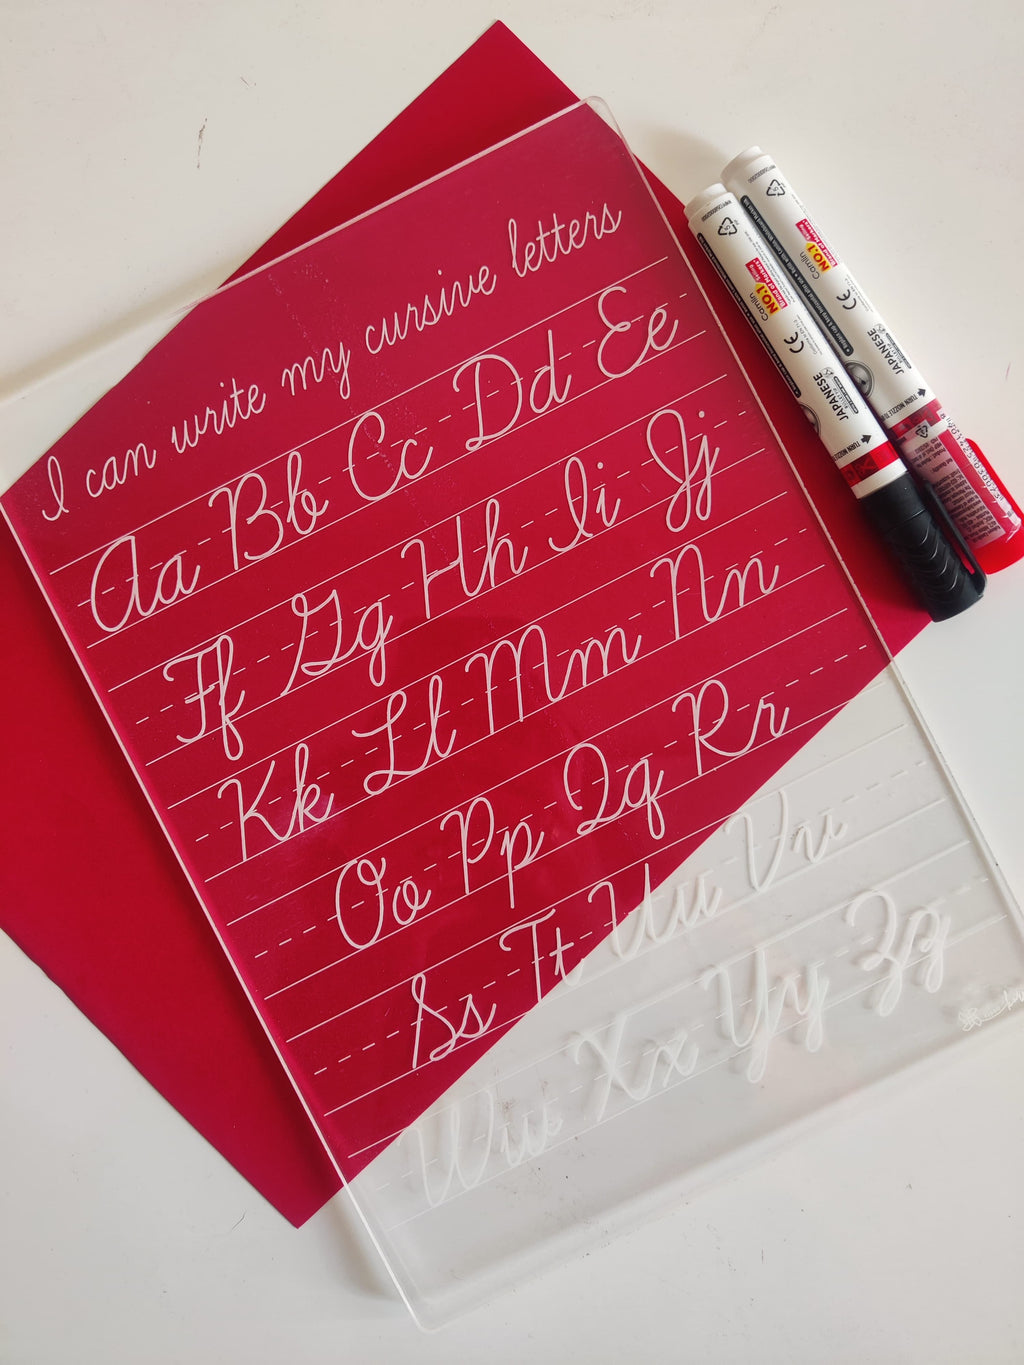 I can write my cursive letters
Aa Bb Cc Dd Ee
Ff Gg Hh Ii Jj
Kk Ll Mm Nn
Oo Pp Qq Rr
Ss Tt Uu Vv
Ww Xx Yy Zz
Camlin
NO.1
CE
JAPANESE
TURN NOZZLE TO
Camlin
NO.1
CE
JAPANESE
TURN NOZZLE